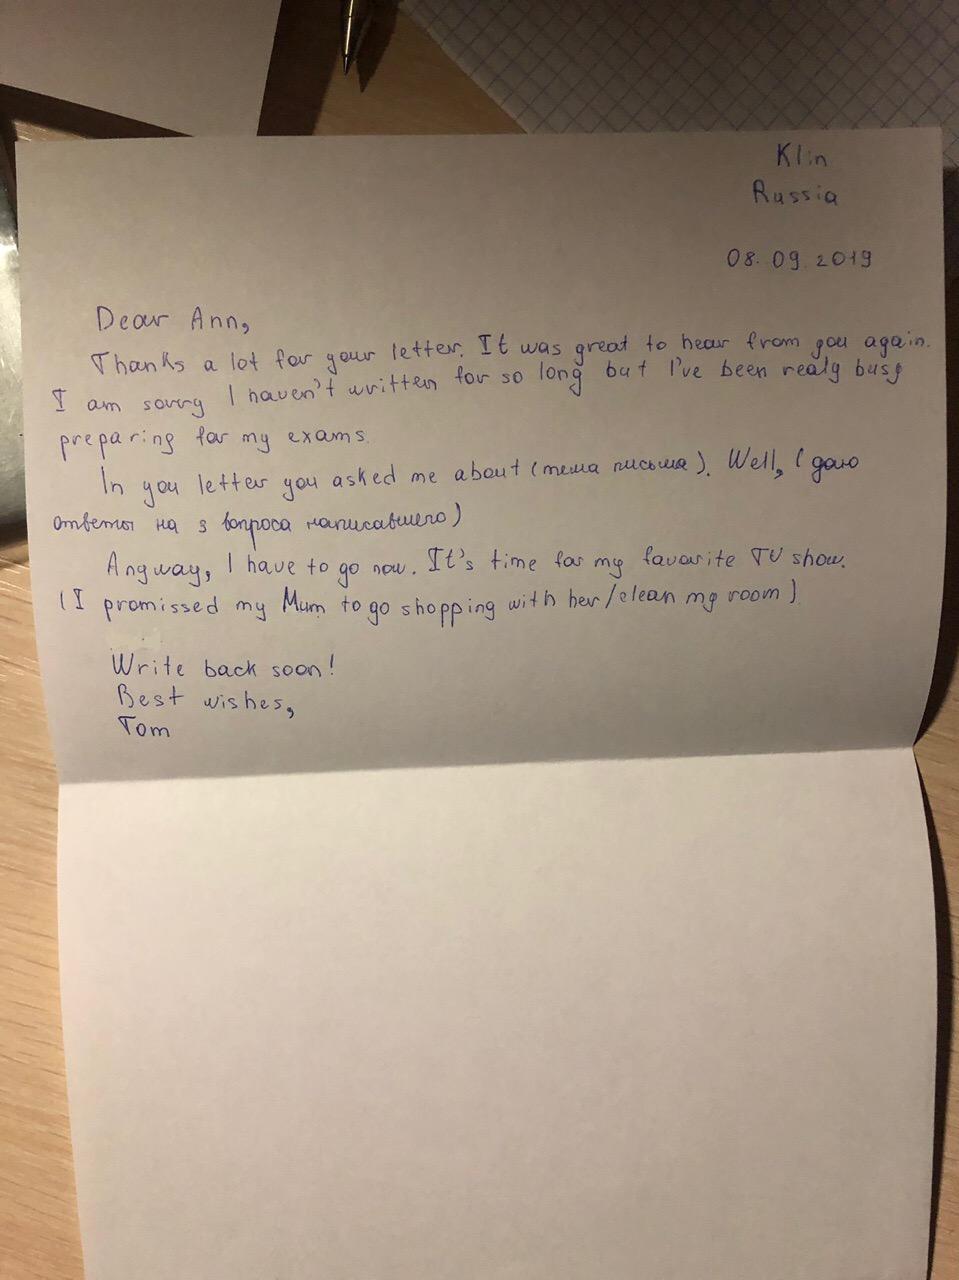 Klin
Russia
08.09.2019
Dear Ann,
Thanks a lot for your letter. It was great to hear from you again.
I am sorry I haven't written for so long but I've been realy busy
preparing for my exams.
In you letter you asked me about (тема письма). Well, (даю
ответы на 3 вопроса написавшего)
Anyway, I have to go now. It's time for my favorite TV show.
(I promissed my Mum to go shopping with her/clean my room)
Write back soon!
Best wishes,
Tom